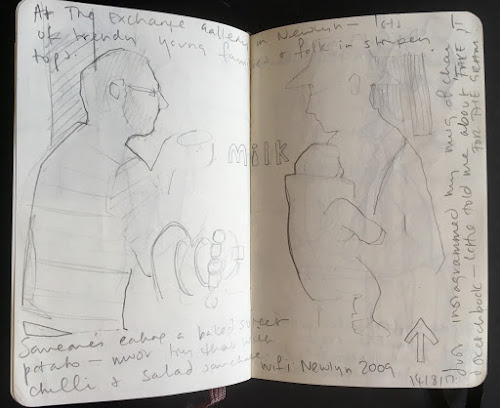 At The Exchange gallery in Newlyn – lots
of trendy young families & folk in stripey
tops.
MILK
Someone's eating a baked sweet
potato – must try that with
chilli & salad sometime.
wifi: Newlyn 2009
14/8/17
Just instagrammed my mug of chai
& sketchbook – Lottie told me about 'TAKE IT
FOR THE GRAM